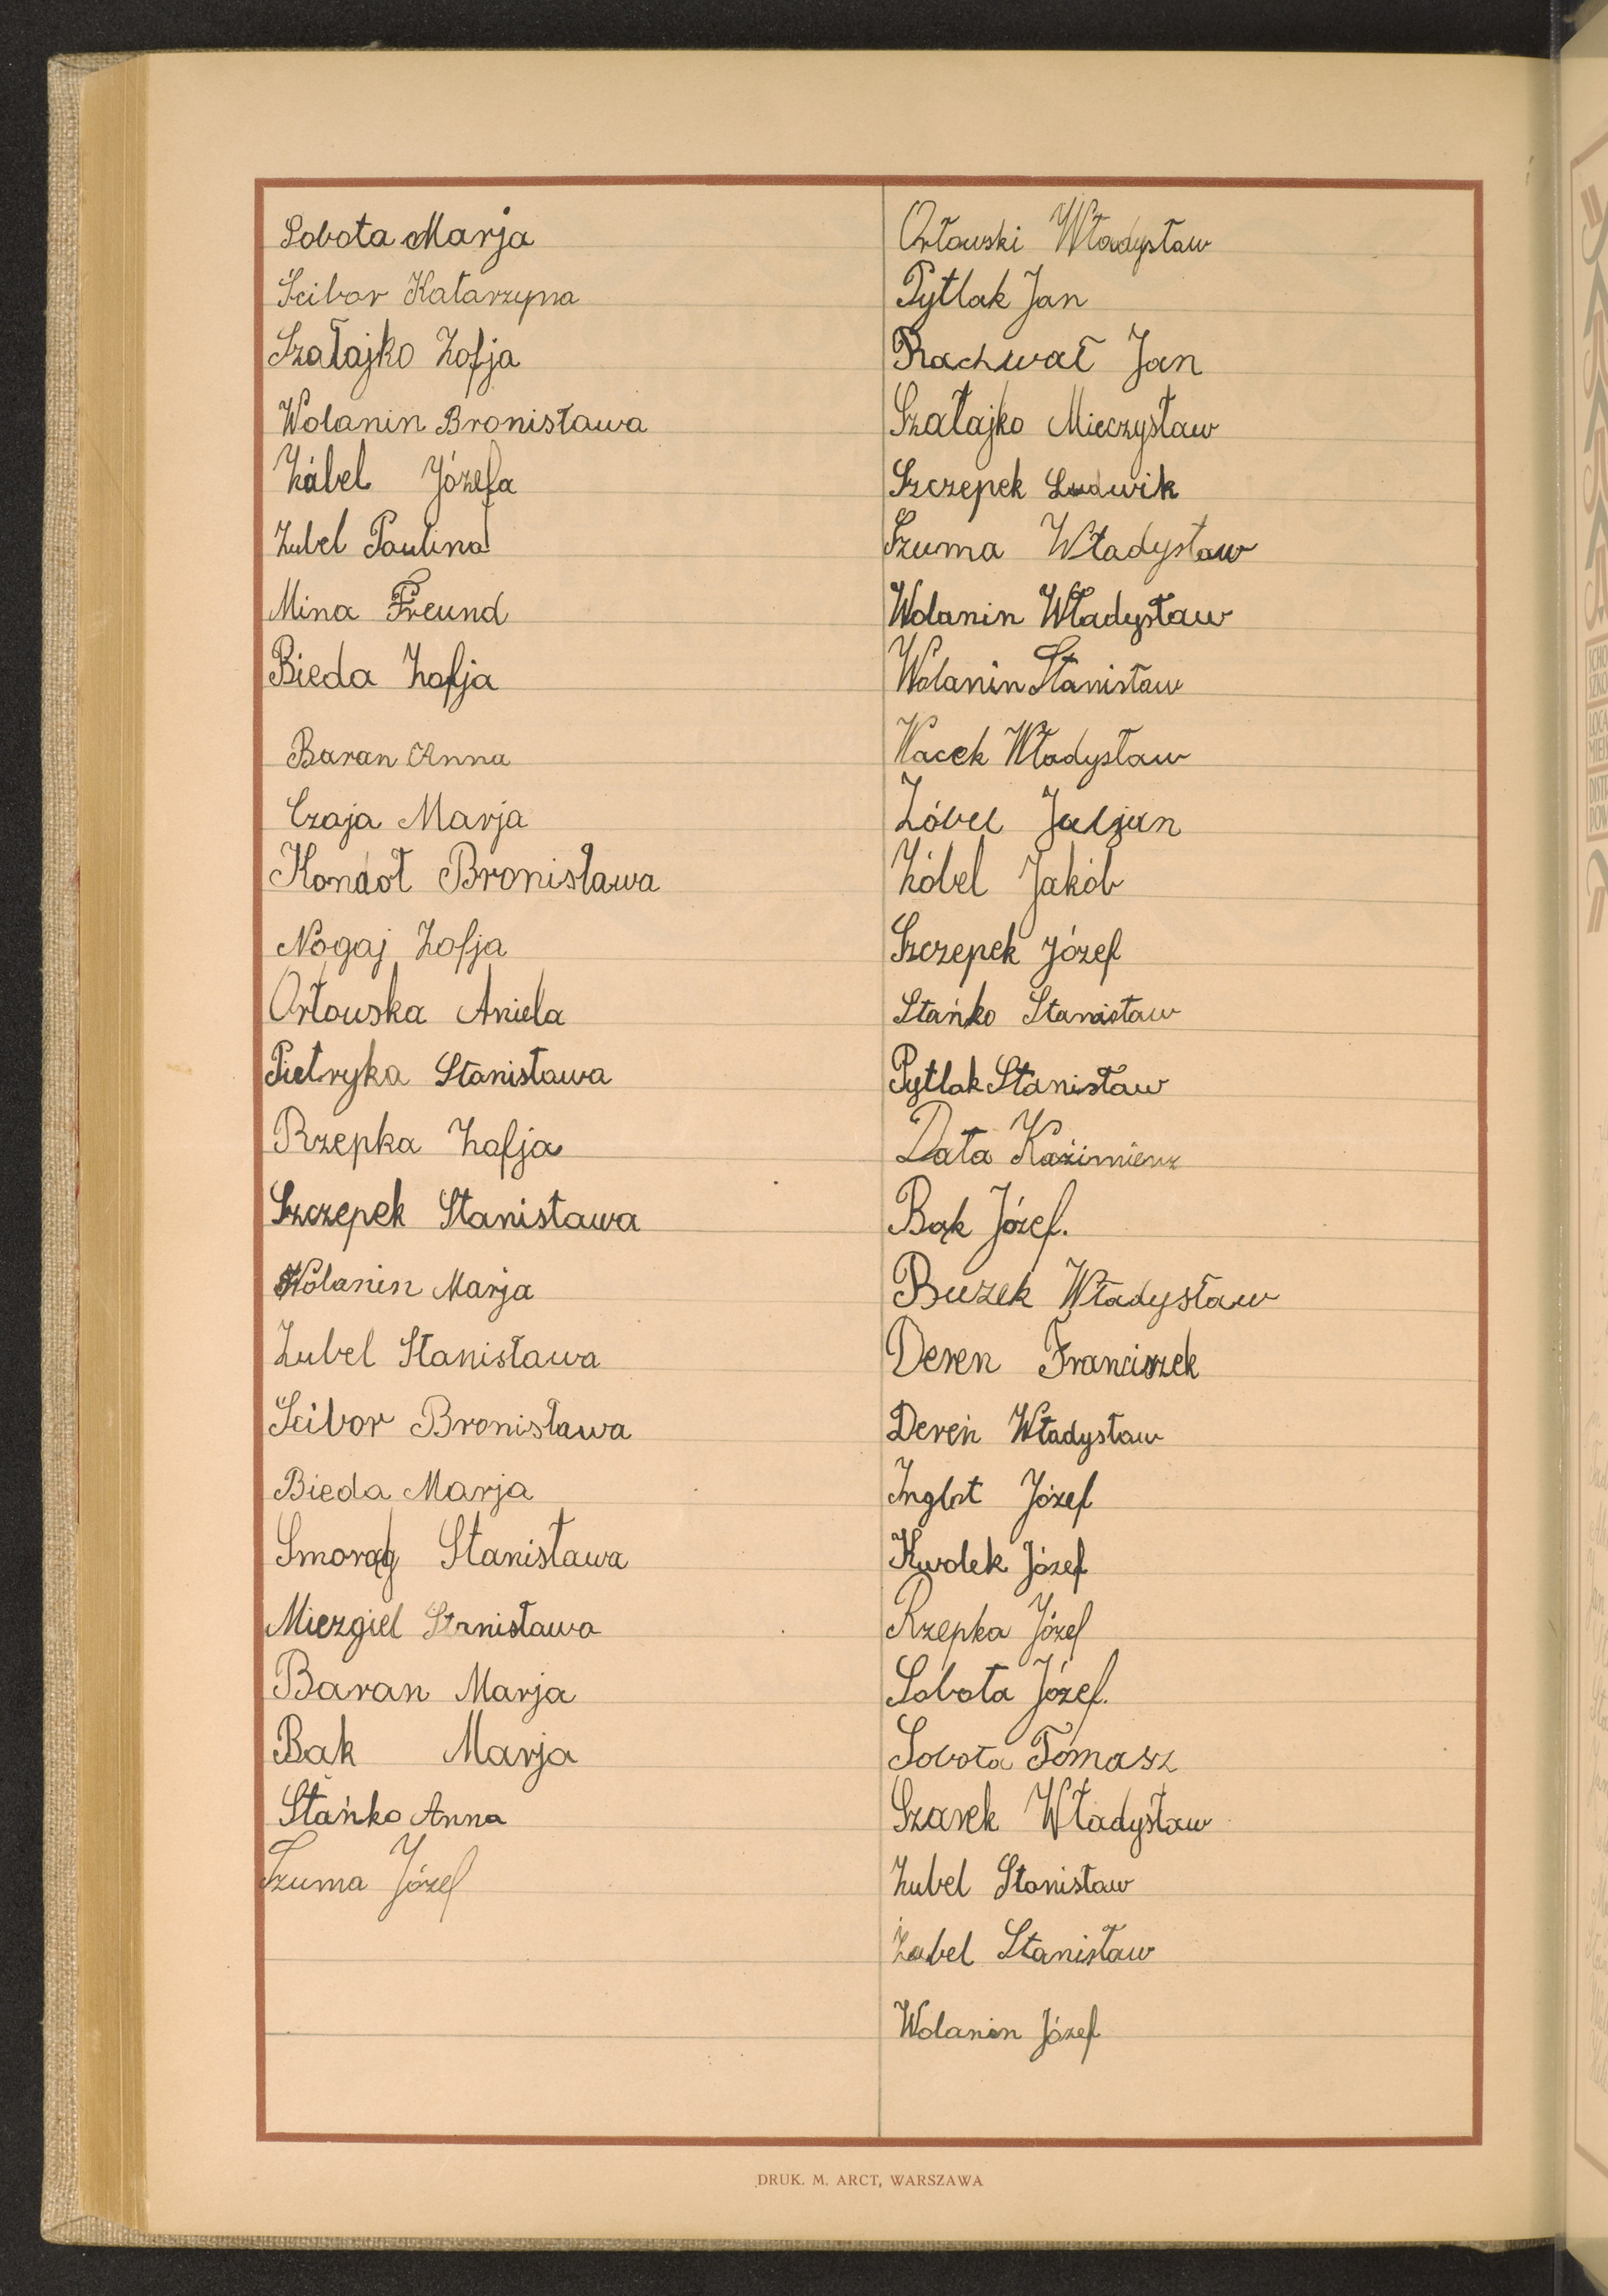 Sobota Marja
Ścibor Katarzyna
Szałajko Zofja
Wolanin Bronisława
Zúbel Józefa
Zubel Paulina
Mina Freund
Bieda Zofja
Baran Anna
Czaja Marja
Kondoł Bronisława
Nogaj Zofja
Orłowska Aniela
Pietryka Stanisława
Rzepka Zofja
Szczepek Stanisława
Wolanin Marja
Zubel Stanisława
Ścibor Bronisława
Bieda Marja
Smorąg Stanisława
Miezgiel Stanisława
Baran Marja
Bąk Marja
Stańko Anna
Szuma Józef
Orłowski Władysław
Pytlak Jan
Rachwał Jan
Szałajko Mieczysław
Szczepek Ludwik
Szuma Władysław
Wolanin Władysław
Wolanin Stanisław
Wacek Władysław
Zóbel Juljan
Zóbel Jakób
Szczepek Józef
Stańko Stanisław
Pytlak Stanisław
Data Kazimierz
Bąk Józef.
Buzek Władysław
Deren Franciszek
Dereń Władysław
Inglot Józef
Kwolek Józef
Rzepka Józef
Sobota Józef.
Sobota Tomasz
Szarek Władysław
Zubel Stanisław
Żubel Stanisław
Wolanin Józef
DRUK. M. ARCT, WARSZAWA